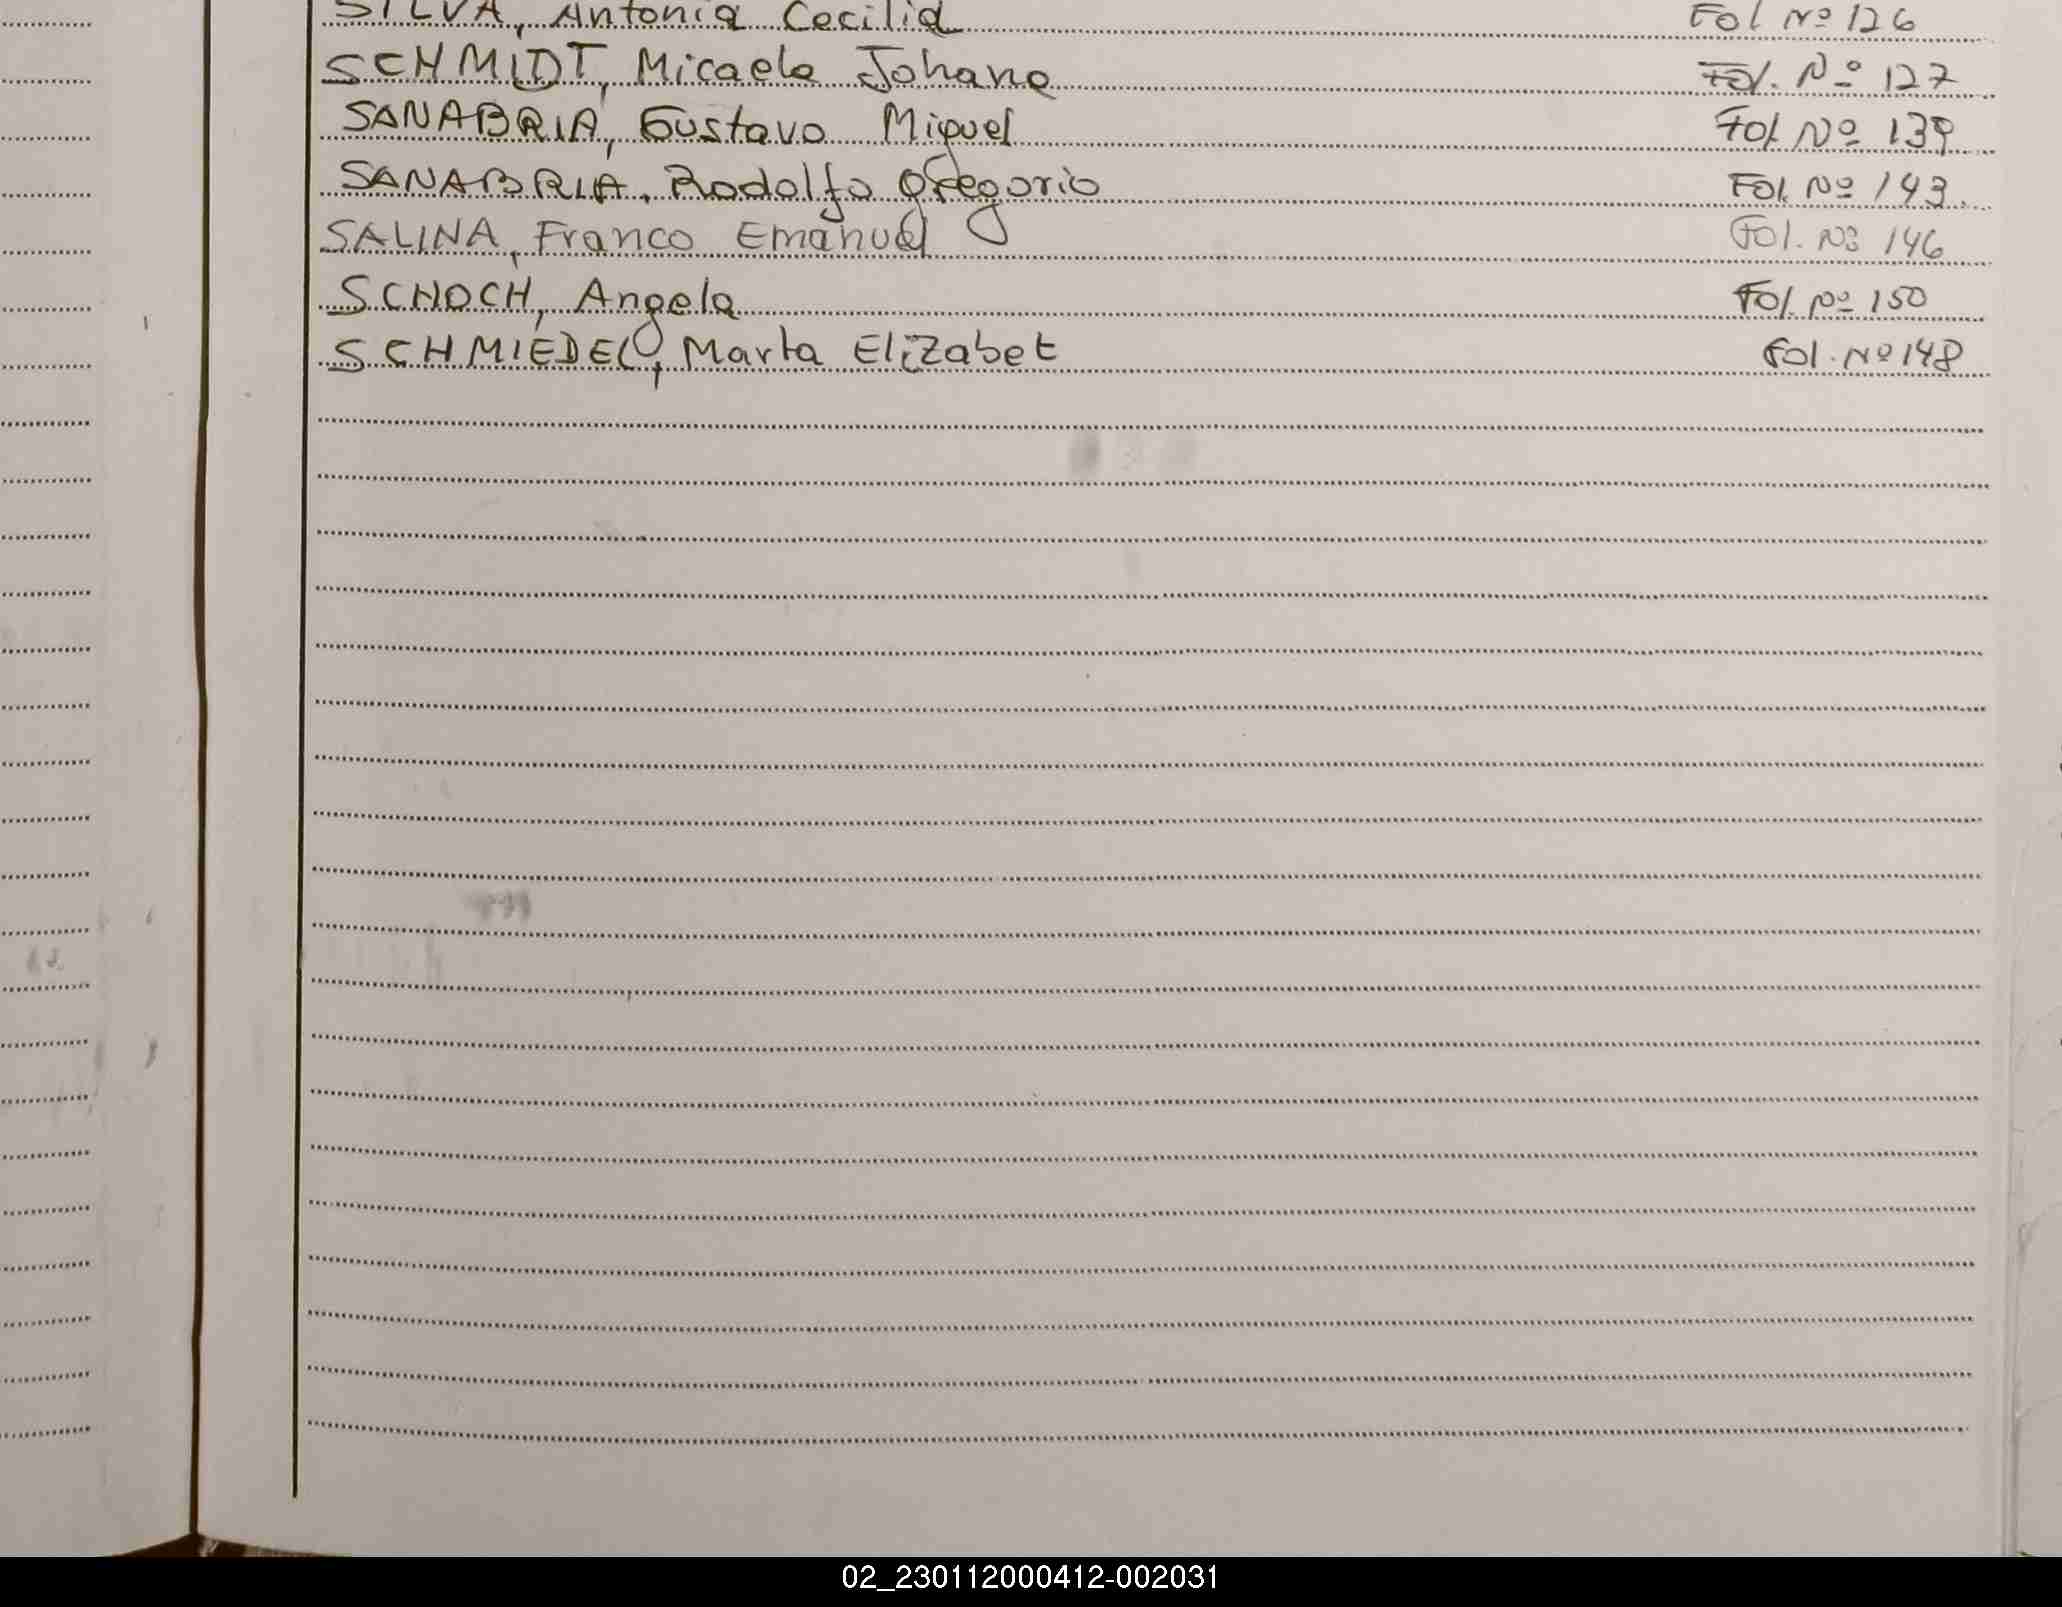 SILVA, Antonia Cecilia Fol Nº 126
SCHMIDT, Micaela Johana Fol. Nº 127
SANABRIA, Gustavo Miguel Fol Nº 139
SANABRIA, Rodolfo Gregorio Fol. Nº 143.
SALINA, Franco Emanuel Fol. Nº 146
SCHOCH, Angela Fol. Nº 150
SCHMIEDEL, Marta Elizabet Fol. Nº 148
02_230112000412-002031